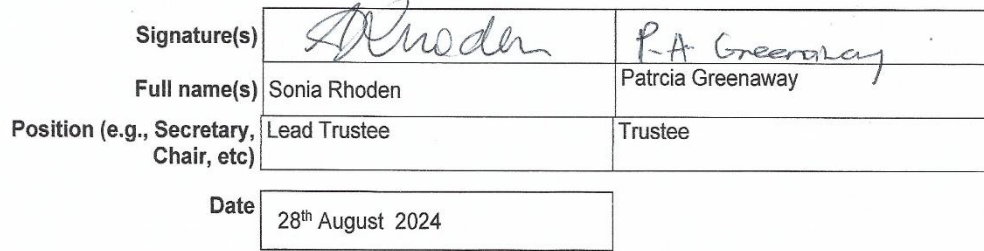 Signature(s) SRhoden P-A Greenaway
Full name(s) Sonia Rhoden Patrcia Greenaway
Position (e.g., Secretary, Chair, etc) Lead Trustee Trustee
Date 28th August 2024